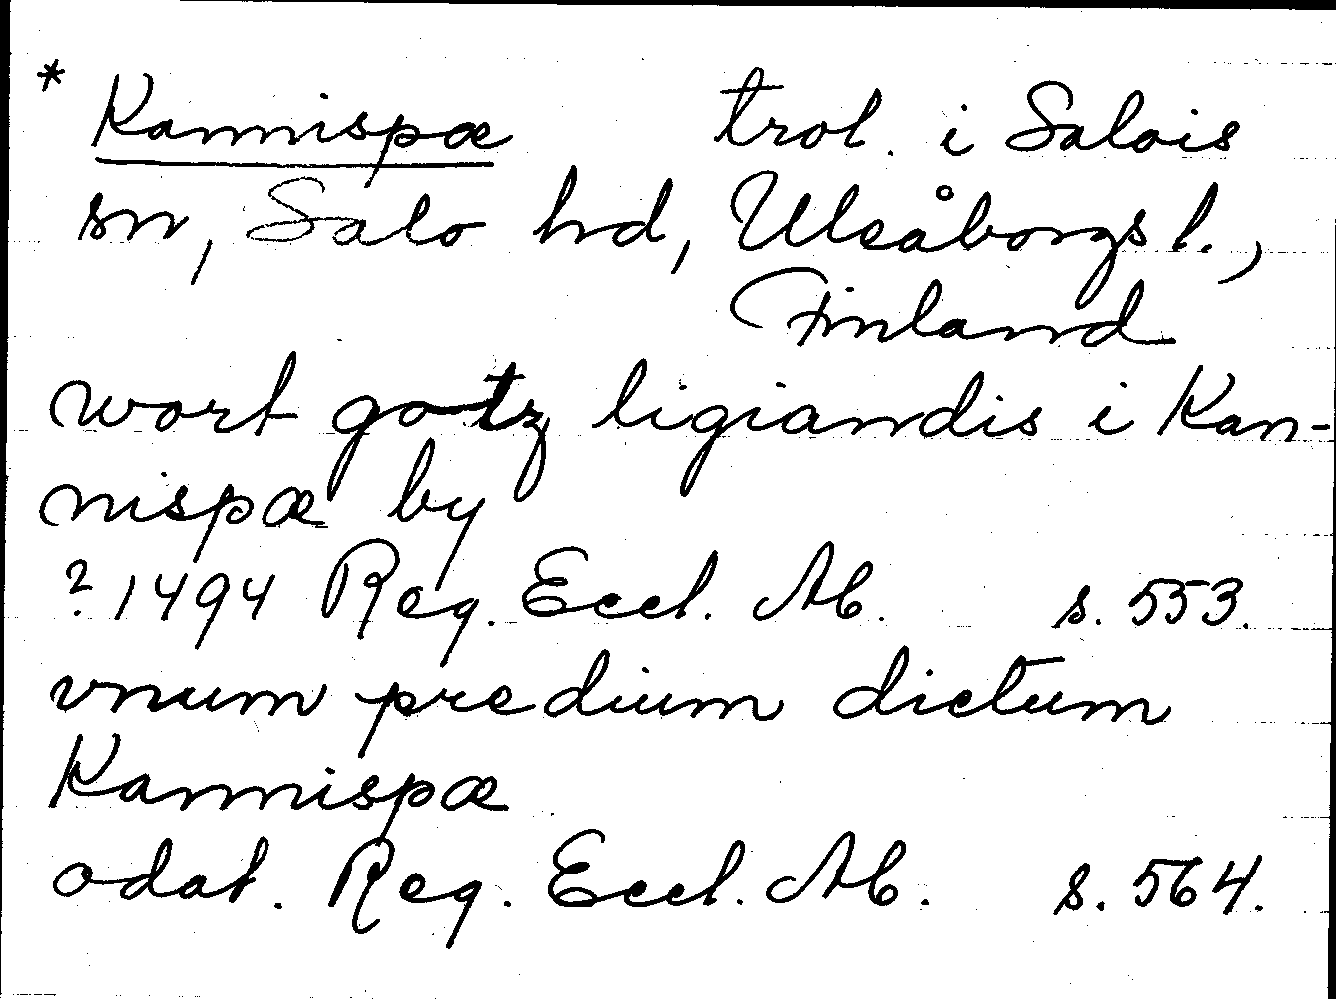 * Kannispæ trol. i Salois
sn, Salo hd, Uleåborgs l.,
Finland
wort gotz ligiandis i Kan-
nispæ by
? 1494 Reg. Eccl. Ab. s. 553.
vnum predium dictum
Kannispæ
odat. Reg. Eccl. Ab. s. 564.